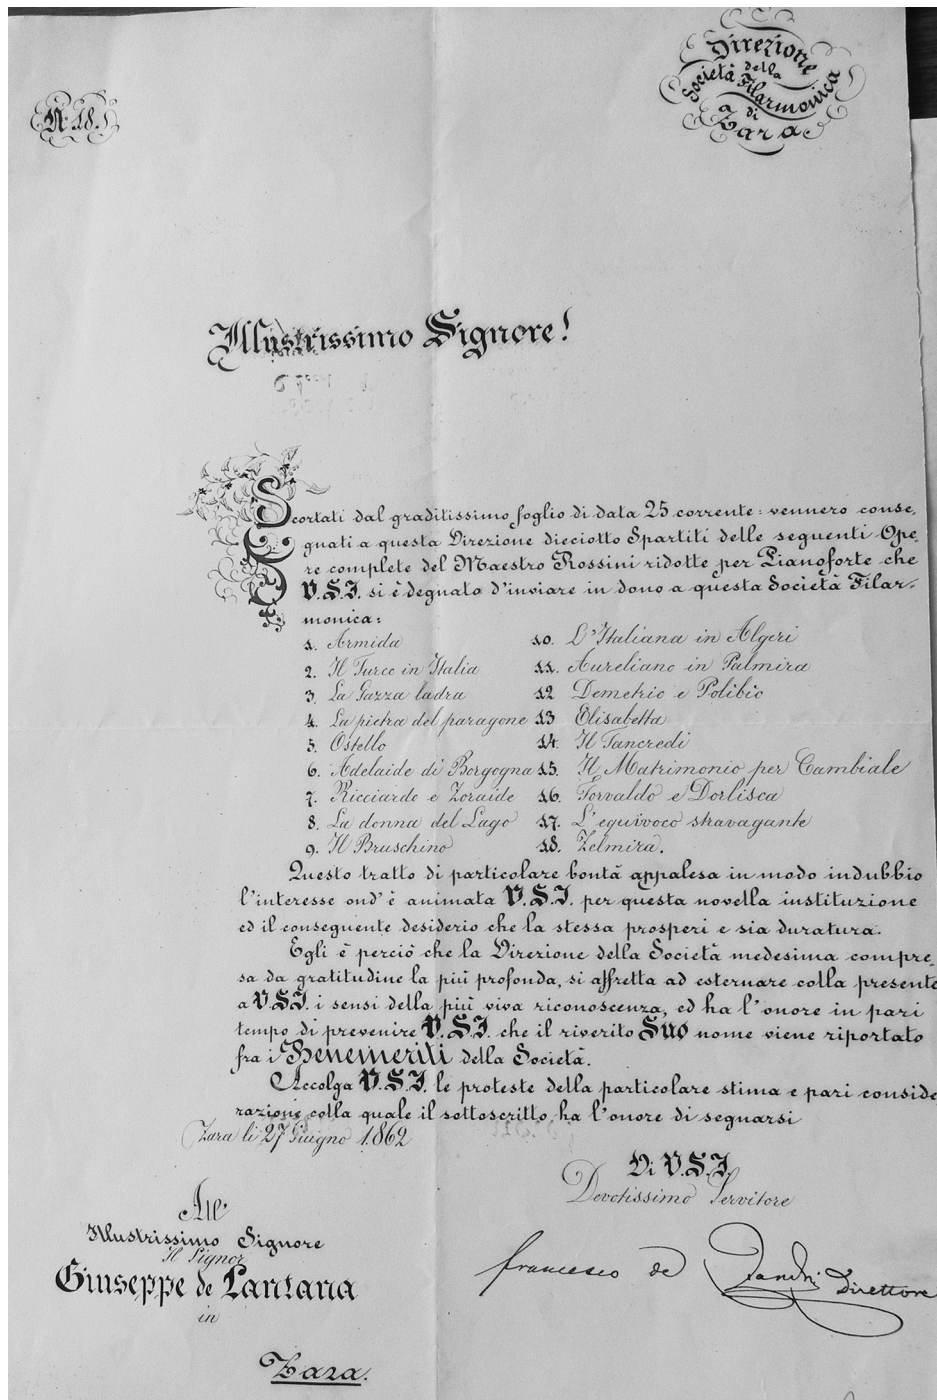 Direzione
della
Società Filarmonica
di
Zara
N. 18.
Illustrissimo Signore!
Scortati dal graditissimo foglio di data 25 corrente: vennero conse,
gnati a questa Direzione dieciotto Spartiti delle seguenti Ope,
re complete del Maestro Rossini ridotte per Pianoforte che
V.S.I. si è degnato d'inviare in dono a questa Società Filar-
monica:
1. Armida
2. Il Turco in Italia
3. La Gazza ladra
4. La pietra del paragone
5. Ostello
6. Adelaide di Borgogna
7. Ricciardo e Zoraide
8. La donna del Lago
9. Il Bruschino
10. L'Italiana in Algeri
11. Aureliano in Palmira
12 Demetrio e Polibio
13 Elisabetta
14. Il Tancredi
15. Il Matrimonio per Cambiale
16. Torvaldo e Dorlisca
17. L'equivoco stravagante
18. Zelmira.
Questo tratto di particolare bontà appalesa in modo indubbio
l'interesse ond'è animata V.S.I. per questa novella instituzione
ed il conseguente desiderio che la stessa prosperi e sia duratura.
Egli è perciò che la Direzione della Società medesima compre,
sa da gratitudine la più profonda, si affretta ad esternare colla presente
a V.S.I. i sensi della più viva riconoscenza, ed ha l'onore in pari
tempo di prevenire V.S.I. che il riverito Suo nome viene riportato
fra i Benemeriti della Società.
Accolga V.S.I. le proteste della particolare stima e pari conside
razione colla quale il sottoscritto ha l'onore di segnarsi
Zara li 27 Giugno 1862
Di V.S.I.
Devotissimo Servitore
francesco de Direttore
All'
Illustrissimo Signore
Il Signor
Giuseppe de Lantana
in
Zara.